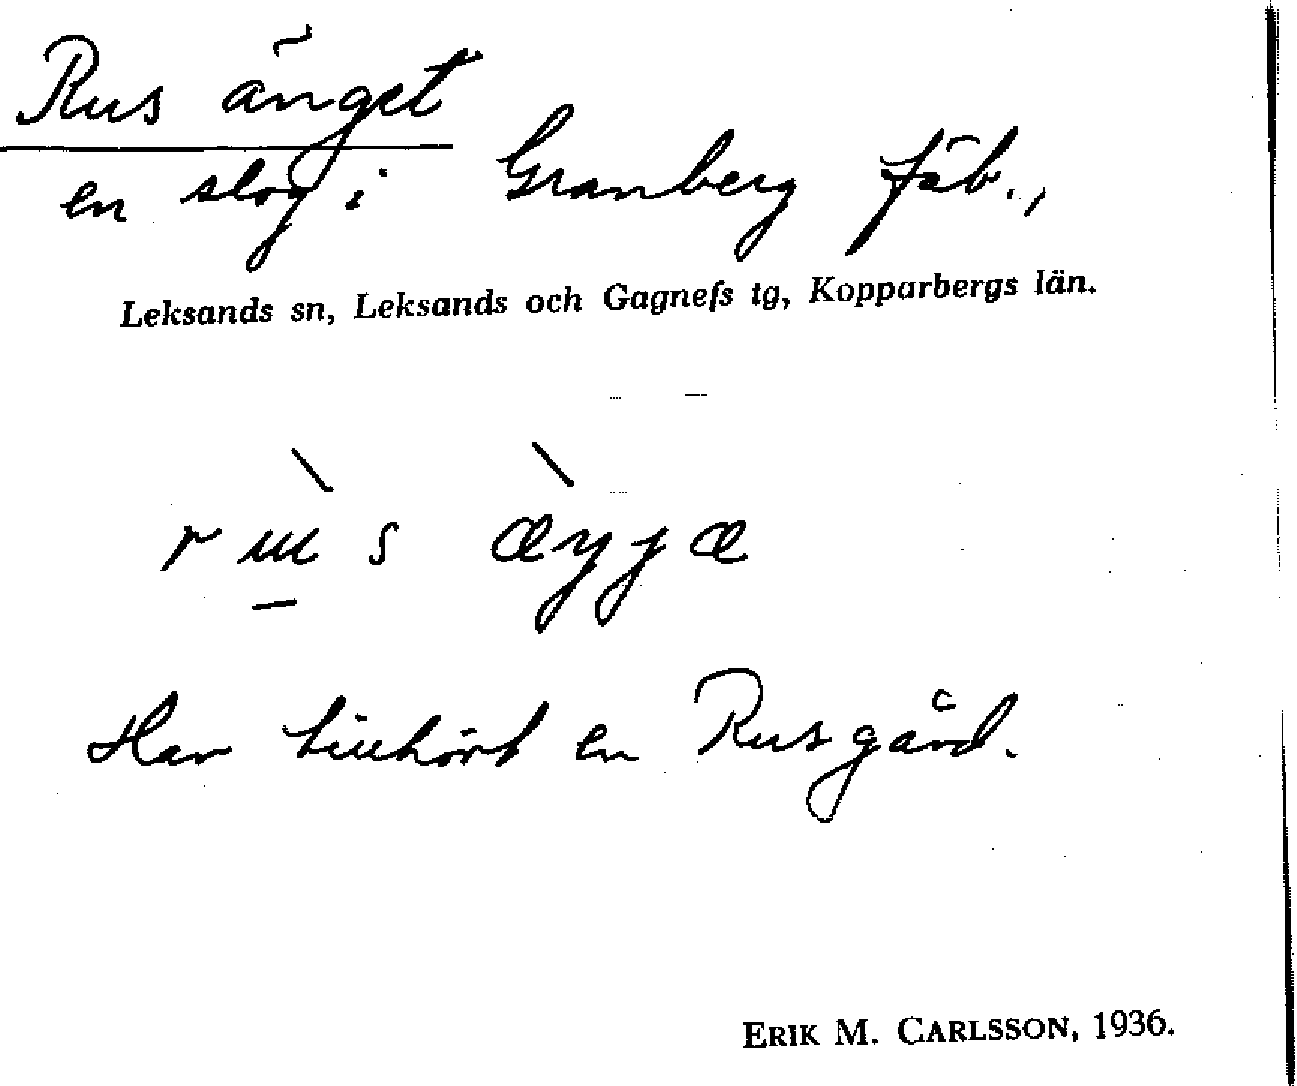 Rus änget
en slog i Granberg fäb.,
Leksands sn, Leksands och Gagnefs tg, Kopparbergs län.
Har tillhört en Rusgård.
ERIK M. CARLSSON, 1936.